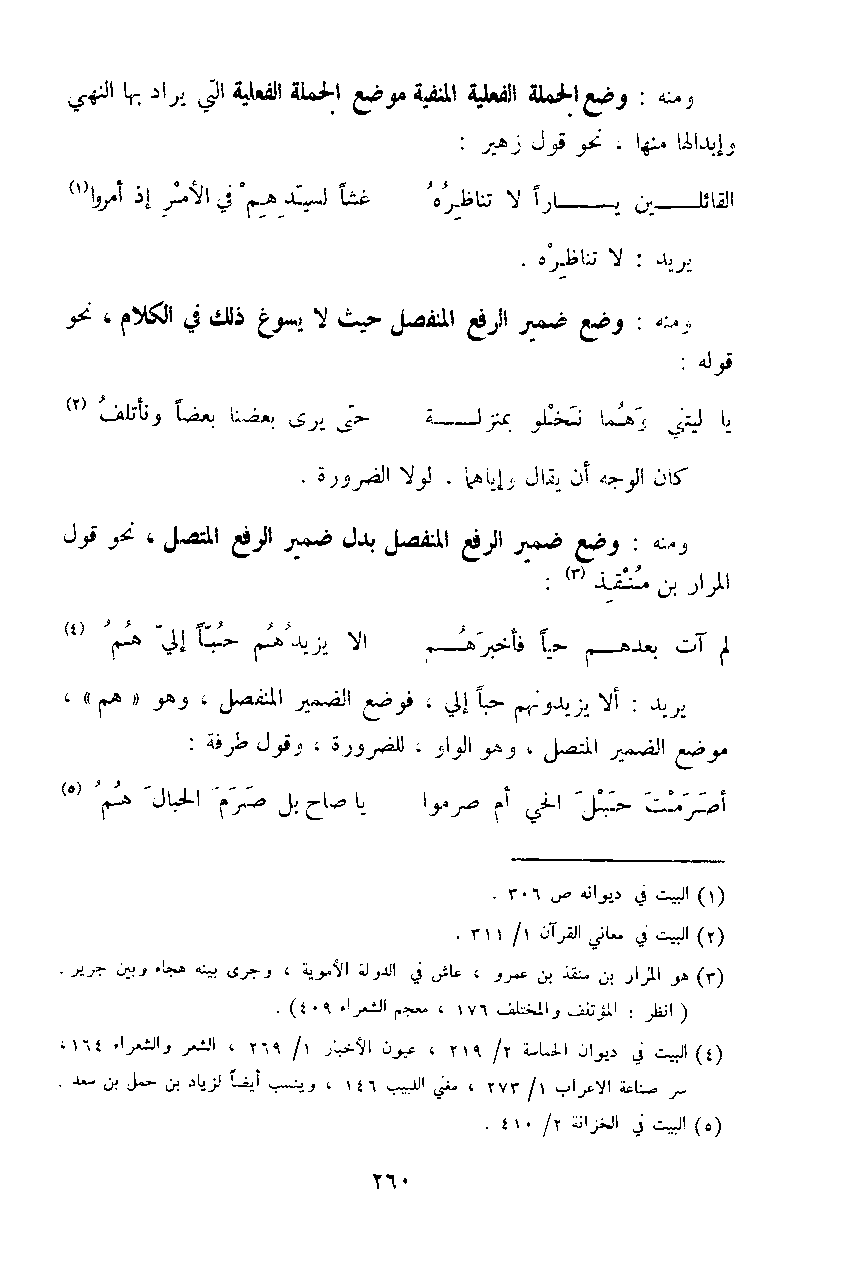 ومنه : وضع الجملة الفعلية المنفية موضع الجملة الفعلية التي يراد بها النهي
وإبدالها منها ، نحو قول زهير :
القائلـــين يـــــاراً لا تناظِرُهُ غشاً لسيّدِهِمْ في الأمْرِ إذ أمروا (١)
يريد : لا تناظِرْه .
ومنه : وضع ضمير الرفع المنفصل حيث لا يسوغ ذلك في الكلام ، نحو
قوله :
يا ليتني وَهُما نَخْلو بمنزلـــة حتى يرى بعضنا بعضاً ونأتلفُ (٢)
كان الوجه أن يقال وإياهما . لولا الضرورة .
ومنه : وضع ضمير الرفع المنفصل بدل ضمير الرفع المتصل ، نحو قول
المرار بن مُنْقِذ (٣) :
لم آت بعدهـــم حياً فأخبرَهُـــم الا يزيدُهُم حُبّاً إليّ هُمُ (٤)
يريد : ألا يزيدونهم حباً إلي ، فوضع الضمير المنفصل ، وهو « هم » ،
موضع الضمير المتصل ، وهو الواو ، للضرورة ، وقول طرفة :
أصَرَمْتَ حَبْلَ الحي أم صرموا يا صاح بل صَرَمَ الحبالَ هُمُ (٥)
(١) البيت في ديوانه ص ٣٠٦ .
(٢) البيت في معاني القرآن ١/ ٣١١ .
(٣) هو المرار بن منقذ بن عمرو ، عاش في الدولة الأموية ، وجرى بينه هجاء وبين جرير .
( انظر : المؤتلف والمختلف ١٧٦ ، معجم الشعراء ٤٠٩) .
(٤) البيت في ديوان الحماسة ٢/ ٢١٩ ، عيون الأخبار ١/ ٢٦٩ ، الشعر والشعراء ١٦٤،
سر صناعة الاعراب ١/ ٢٧٣ ، مغني اللبيب ١٤٦ ، وينسب أيضاً لزياد بن حمل بن سعد .
(٥) البيت في الخزانة ٢/ ٤١٠ .
٢٦٠